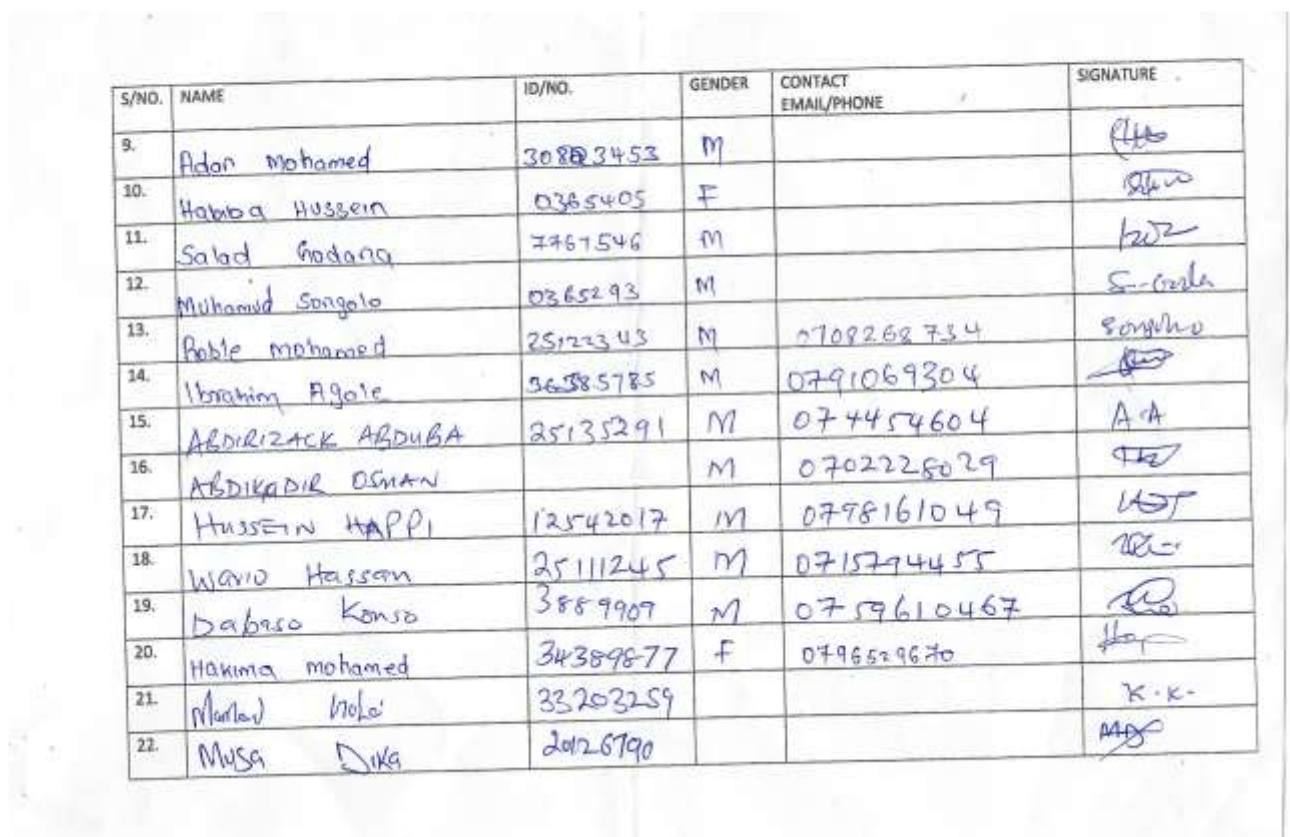 S/NO. NAME ID/NO. GENDER CONTACT EMAIL/PHONE SIGNATURE
9. Adan Mohamed 3453 M
10. Habiba Hussein 0365405 F
11. Salad Godana 7767546 M
12. Muhamud Songolo 0365293 M
13. Roble mohamed 25122343 M 0708268734
14. Ibrahim Agole 36385785 M 0791069304
15. ABDIRIZACK ABDUBA 25135291 M 074454604 A.A
16. ABDIKADIR OSMAN M 0702228029
17. HUSSEIN HAPPI 12542017 M 0798161049
18. Wario Hassan 25111245 M 0715794455
19. Dabaso Konso 3889909 M 0759610467
20. Hakima mohamed 34389877 F 0796529670
21. 33203259 K.K.
22. Musa Dika 20126790